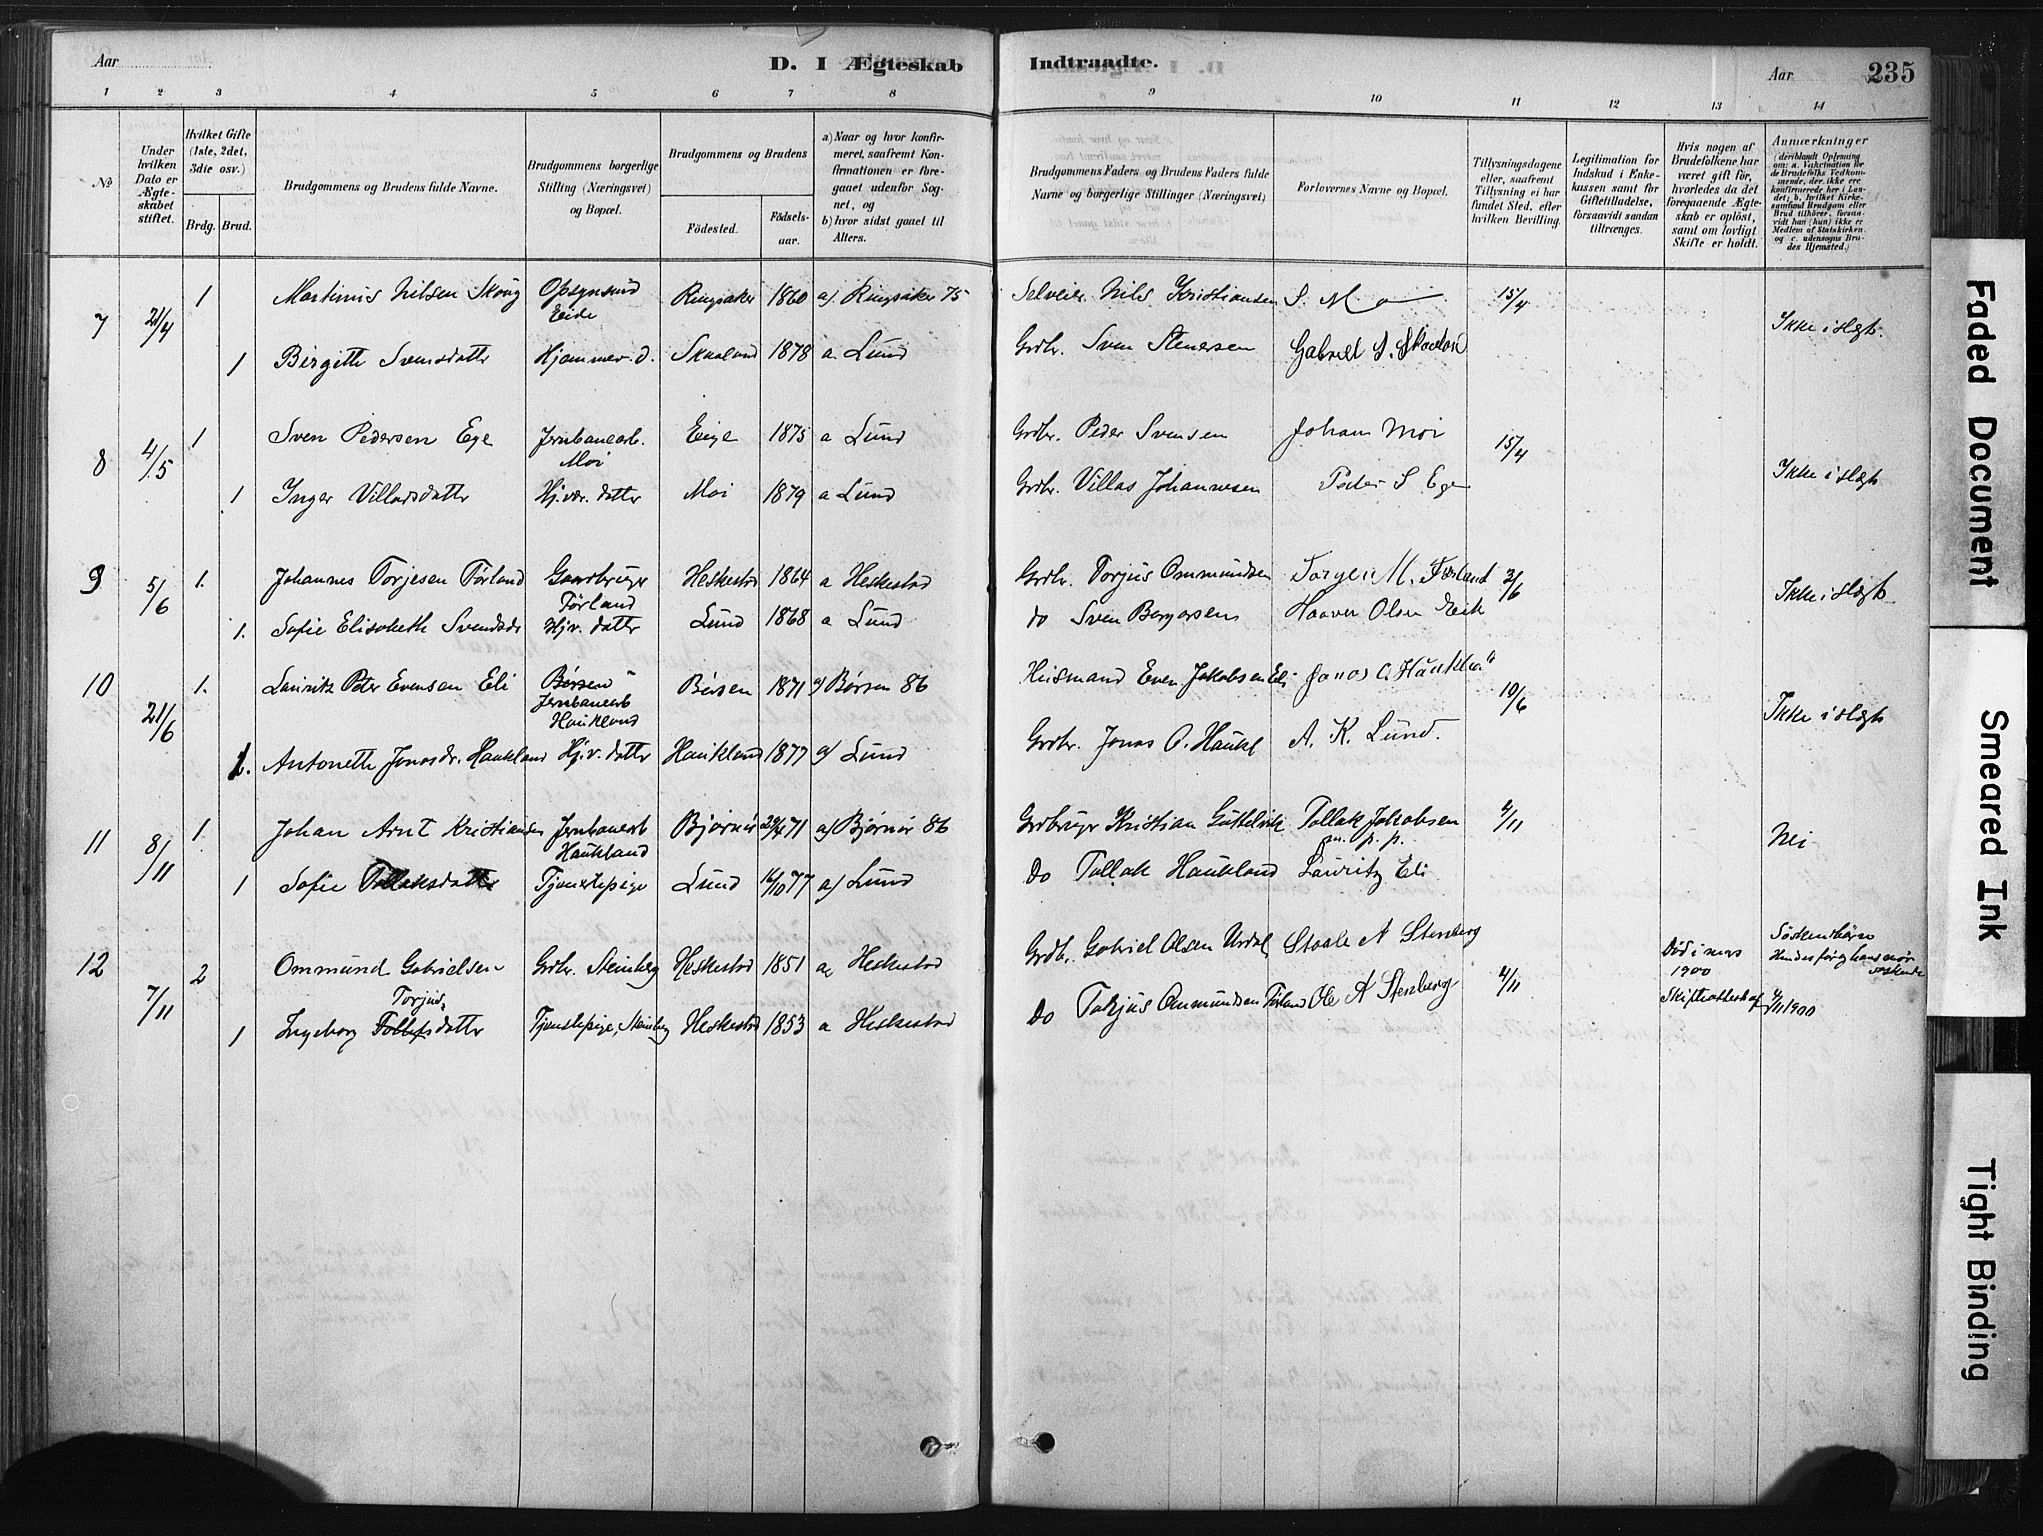 Aar D. I Ægteskab Indtraadte. Aar 235
1 2 3 4 5 6 7 8 9 10 11 12 13 14
№
Under hvilken Dato er Ægteskabet stiftet.
Hvilket Gifte (1ste, 2det, 3die osv.)
Brdg. Brud.
Brudgommens og Brudens fulde Navne.
Brudgommens borgerlige Stilling (Næringsvei) og Bopæl.
Brudgommens og Brudens
Födested. Födsels-aar.
a) Naar og hvor konfirmeret, saafremt Konfirmationen er foregaaet udenfor Sognet, og b) hvor sidst gaaet til Alters.
Brudgommens Faders og Brudens Faders fulde Navne og borgerlige Stillinger (Næringsvei)
Forlovernes Navne og Bopæl.
Tillysningsdagene eller, saafremt Tillysning ei har fundet Sted, efter hvilken Bevilling.
Legitimation for Indskud i Enkekassen samt for Giftetilladelse, forsaavidt saadan tiltrænges.
Hvis nogen af Brudefolkene har været gift för, hvorledes da det foregaaende Ægteskab er oplöst, samt om lovligt Skifte er holdt.
Anmærkninger
(deriblandt Oplysning om: a. Vakcination for de Brudefolks Vedkommende, der ikke ere konfirmerede her i Landet; b. hvilket Kirkesamfund Brudgom eller Brud tilhörer, forsaavidt han (hun) ikke er Medlem af Statskirken, og c. udensogns Brudes Hjemsted.)
7 21/4 1 Martinus Nilsen Skoug Opsynsmd Eide Ringsaker 1860 a). Ringsaker 75 Selveier. Nils Kristiansen S. M 15/4 Ikke i slegt.
1 Birgitte Svensdatter Hjemmev. d. Skaaland 1878 a. Lund Grdbr. Sven Stenersen Gabriel S. Skaaland
8 4/5 1 Sven Pedersen Ege Jernbanearb. Moi Eige 1875 a Lund Grdbr. Peder Svensen Johan Moi 15/4 Ikke i slegt
1 Inger Villadsdatter Hj.vær. datter Moi 1879 a Lund Grdbr. Villas Johannesen Peder S Ege
9 5/6 1. Johannes Torjesen Förland Gaardbruger Förland Heskestad 1864 a Heskestad Grdbr. Torjus Ommundsen Torger M. Førland 2/6 Ikke i slegt
1. Sofie Elisabeth Svendsdr Hjv. datter Lund 1868 a Lund do Sven Bergersen Haaver Olsen Eik
10 21/6 1. Lauritz Peter Evensen Eli Børsen Jernbanearb Haukland Børsen 1871 a) Børsen 86 Husmand Even Jakobsen Eli Jonas O Haukland 10/6 Ikke i slegt
1. Antonette Jonasdr. Haukland Hj.v. datter Haukland 1877 a) Lund Grdbr. Jonas O. Haukl A. K. Lund.
11 8/11 1. Johan Arnt Kristiansen Jernbanearb Haukland Bjørnør 29/4 71 a) Bjørnør 86 Grdbruger Kristian Guttelvik Tollak Jakobsen m. p. p. 4/11 Nei
1 Sofie Tollaksdatter Tjenestepige Lund 16/10 77 a) Lund Do Tollak Haukland Lauritz Eli
12 7/11 2 Ommund Gabrielsen Grdbr. Steinberg Heskestad 1851 a Heskestad Grdb. Gabriel Olsen Urdal Staale A Stenberg 4/11 Död i mars 1900 Skifteattest af 4/11 1900 Söskenebørn Hendes far og hans mor söskende
1 Ingeborg Torjus Tollefsdatter Tjenstepige, Steinberg Heskestad 1853 a Heskestad Do Torjus Ommundsen Førland Ole A Stenberg
Faded Document
Smeared Ink
Tight Binding